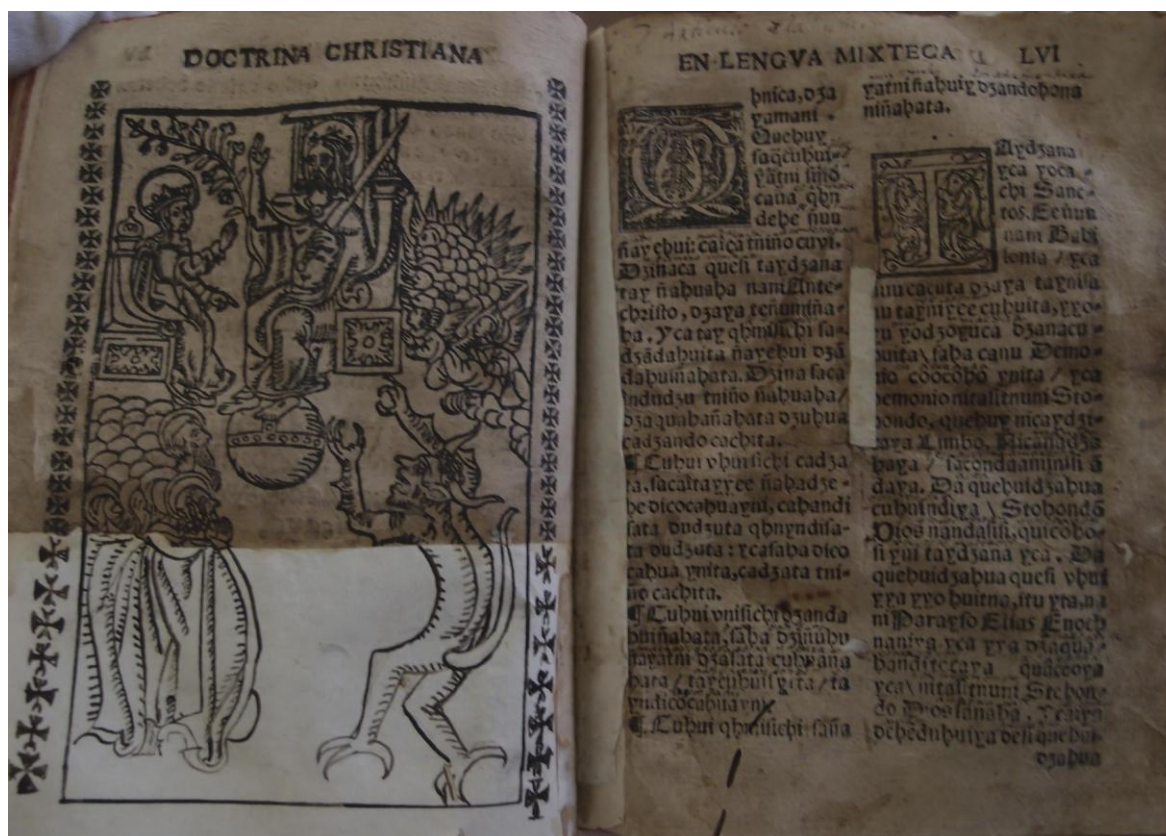 DOCTRINA CHRISTIANA
EN LENGVA MIXTECA
LVI
Q bnica, dza
yamani.
Quehuy
saqcuhui-
yatni sino
caua, qhn
dehe ñuu
ñayehui: caica tniño cuyi.
Dzinaca quesi taydzana
tay ñahuaha nani Ante-
christo, dzaya teñumiña-
ha. yca tay qhmisichi sa-
dzãdahuita ñayehui dzã
dahuiñahata. Dzina saca
indudzu tniño ñahuaha/
dzaquahañahata dzuhua
cadzando cachita.
¶ Cuhui vhuisichi cadza
ta. sacaitayyee ñahadze-
he dicocahuayni, cuhandi
sata dudzuta qhnyndisa-
ta dudzuta: ycasaha dico
cahua ynita, cadzata tni-
ño cachita.
¶ Cuhui vnisichi dzanda
huiñahata, saha dziñuhu
sayatni dzasata cuhuana
hata / taycuhuisi yita / ta
yndicocahuayni
¶ Cuhui qhmisichi saña
yatniñahuiy dzandohona
niñahata.
T Aydzana
yca yoca-
chi Sanc-
tos. Ee ñuu
nani Babi
lonia / yca
nuu cacuta dzaya tayñisa
cuhuita, yyo-
yodzoyuca dzanacu-
huita \ saha canu Demo-
nio cõocõhõ ynita / yca
demonio nitasitnuni Sto-
hondo, quehuy nicaydzi-
taya Limbo. Nicanadza
haya / sacondaanijnisi ã
daya. Da quehuidzahua
cuhuindiya \ Stohondõ
Dios nandasisi, quicõho-
si yni taydzana yca. Da
quehuidzahua quesi vhui
yya yyo huitna, itu yta, na
ni Parayso Elias Enoch
naniya yca yya dzaqua-
handiteeaya quaceeya
yca \ nitasitnuni Stohon-
do Dios sañaha.
dehedñhuiya desi quehui
dzahua